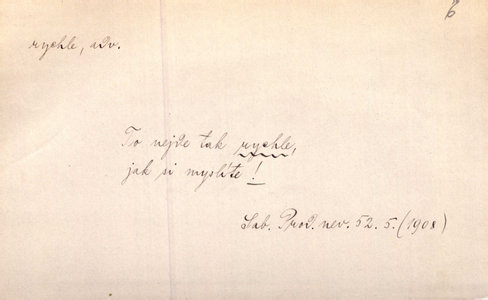 6
rychle, adv.
To nejde tak rychle,
jak si myslíte!
Sab. Prod. nev. 52. 5. (1908)